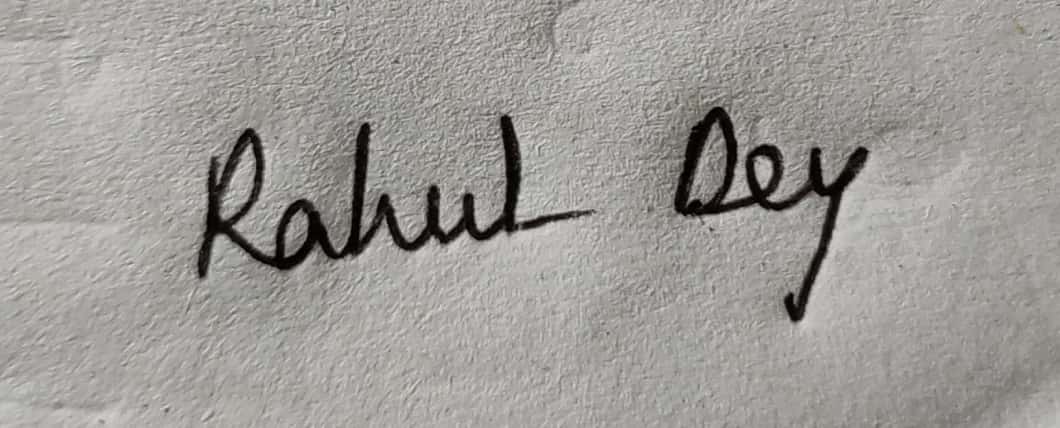 Rahul Dey